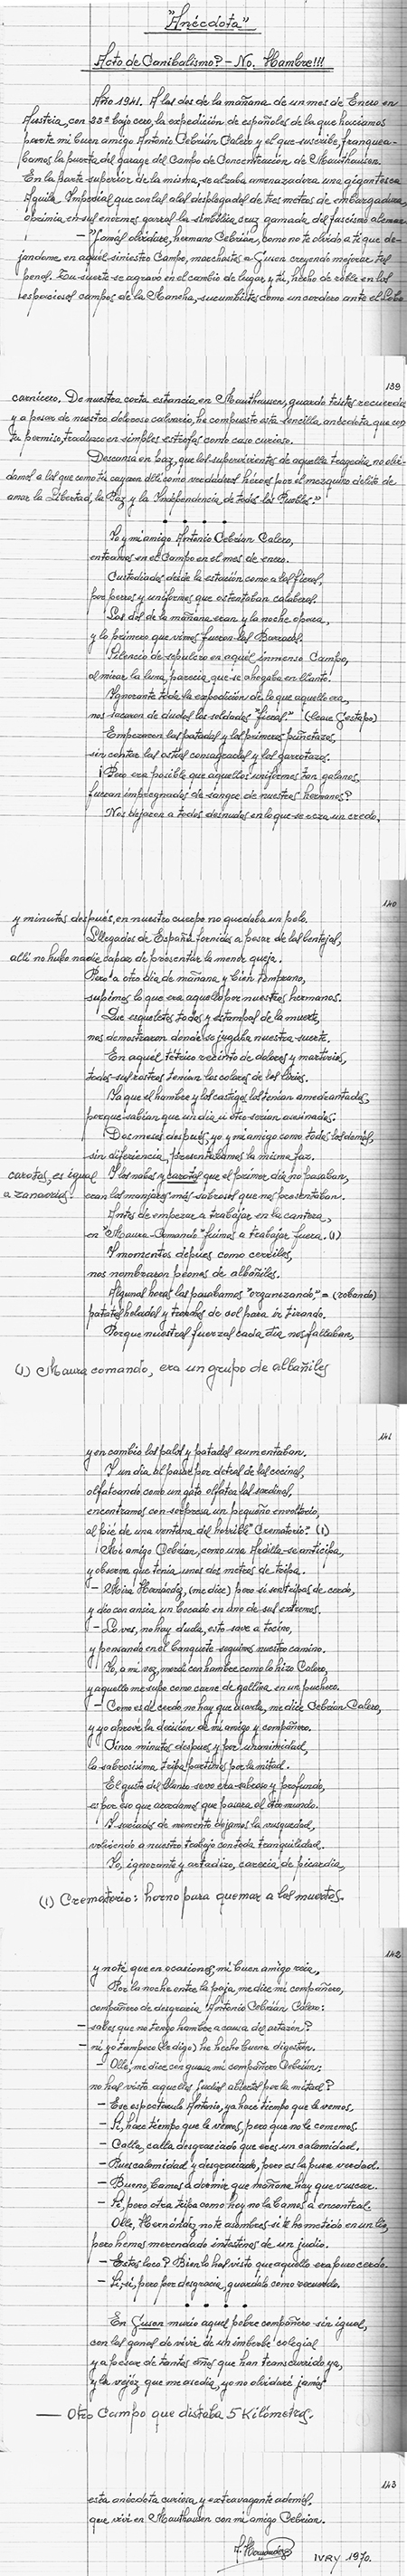 "Anécdota"
Acto de Canibalismo? - No. Hambre!!!
Año 1941. A las dos de la mañana de un mes de Enero en
Austria, con 23º bajo cero, la expedición de españoles de la que hacíamos
parte mi buen amigo Antonio Cebrián Calero y el que suscribe, franquea-
bamos la puerta del garage del Campo de Concentración de Mauthausen.
En la parte superior de la misma, se alzaba amenazadora una gigantesca
Aguila Imperial que con las alas desplegadas de tres metros de embargadura
oprimia en sus enormes garras la simbólica cruz gamada del fascismo aleman
- "Jamás olvidaré, hermano Cebrián, como no te olvido a ti que de-
jandome en aquel siniestro Campo, marchastes a Gusen creyendo mejorar tus
penas. Tu suerte se agravó en el cambio de lugar y tú, hecho de roble en los
espaciosos campos de la Mancha, sucumbistes como un cordero ante el Lobo
139
carnicero. De nuestra corta estancia en Mauthausen, guardo tristes recuerdos
y a pesar de nuestro doloroso calvario, he compuesto esta sencilla anécdota que con
tu permiso, traduzco en simples estrofas como caso curioso.
Descansa en Paz, que los supervivientes de aquella tragedia no olvi-
damos a los que como tú cayeron allí como verdaderos héroes por el mezquino delito de
amar la Libertad, la Paz y la Independencia de todos los Pueblos."
. . . .
Yo y mi amigo Antonio Cebrian Calero,
entramos en el Campo en el mes de enero.
Custodiados desde la estación como a las fieras,
por perros y uniformes que ostentaban calaveras.
Las dos de la mañana eran y la noche opaca,
y lo primero que vimos fueron las Barracas.
Silencio de sepulcro en aquel inmenso Campo,
al mirar la luna, parecia que se ahogaba en llanto.
Ignorante toda la expedición de lo que aquello era,
nos sacaron de dudas los soldados "fieras." (léase Gestapo)
Empezaron las patadas y los primeros puñetazos,
sin contar las ostias consagradas y los garrotazos.
¿Pero era posible que aquellos uniformes tan galanos,
fueran impregnados de sangre de nuestros hermanos?
Nos dejaron a todos desnudos en lo que se reza un credo,
140
y minutos después, en nuestro cuerpo no quedaba un pelo.
Llegados de España fornidos a pesar de las lentejas,
allí no hubo nadie capaz de presentar la menor queja.
Pero a otro dia de mañana y bien temprano,
supimos lo que era aquello por nuestros hermanos.
Que esqueletos todos y estampas de la muerte,
nos demostraron donde se jugaba nuestra suerte.
En aquél tétrico recinto de dolores y martirios,
todos sus rostros tenian los colores de los lirios.
Ya que el hambre y los castigos los tenian amedrantados,
porque sabian que un dia u otro serian asesinados.
Dos meses después, yo y mi amigo como todos los demás,
sin diferencia, presentabamos la misma faz.
carotas, es igual
a zanaorias.
Y los nabos y carotas que el primer dia no pasaban,
eran los manjares más sabrosos que nos presentaban.
Antes de empezar a trabajar en la cantera,
en "Maura-Comando" fuimos a trabajar fuera. (1)
Y momentos depues como cerriles,
nos nombraron peones de albañiles.
Algunas horas las pasabamos "organizando," = (robando)
patatas heladas y tronchos de col para ir tirando.
Porque nuestras fuerzas cada dia nos faltaban,
(1) Maura comando, era un grupo de albañiles
141
y en cambio los palos y patadas aumentaban.
Y un dia al pasar por detras de las cocinas,
olfateando como un gato olfatea las sardinas,
encontramos con sorpresa un pequeño envoltorio,
al pié de una ventana del horrible "Crematorio." (1)
Mi amigo Cebrian, como una Ardilla se anticipa,
y observa que tenia unos dos metros de tripa.
- Mira Hernández, (me dice) pero si son tripas de cerdo,
y dio con ansia un bocado en uno de sus extremos.
- Lo ves, no hay duda, esto save a tocino,
y pensando en el banquete seguimos nuestro camino.
Yo, a mi vez, mordi con hambre como lo hizo Calero,
y aquello me supo como carne de gallina, en un puchero.
- Como es de cerdo no hay que asarla, me dice Cebrian Calero,
y yo aprové la decisión de mi amigo y compañero.
Cinco minutos despues y por unanimidad,
la sabrosisima tripa partimos por la mitad.
El gusto del blanco sevo era sabroso y profundo,
es por eso que acordamos que pasara al otro mundo.
Y saciados de momento dejamos la rusquedad,
volviendo a nuestro trabajo con toda tranquilidad.
Yo, ignorante y asustadizo, carecia de picardia,
(1) Crematorio: horno para quemar a los muertos.
142
y noté que en ocasiones, mi buen amigo reia,
Por la noche entre la paja, me dice mi compañero,
compañero de desgracia Antonio Cebrián Calero:
- sabes que no tengo hambre a causa del atracón?
- ni yo tampoco (le digo) he hecho buena digestión.
- Olle, me dice con guasa mi compañero Cebrián;
no has visto aquellos judios abiertos por la mitad?
- Ese espectaculo Antonio, ya hace tiempo que le vemos.
- Si, hace tiempo que le vemos, pero que no le comemos.
- Calla, calla desgraciado que eres un calamidad.
- Pues calamidad y desgraciado, pero es la pura verdad.
- Bueno, bamos a dormir que mañana hay que vuscar.
- Si, pero otra tripa como hoy no la bamos a encontrar.
Olle, Hernández no te asombres si te ha metido en un lio,
pero hemos merendado intestinos de un judio.
- Estas loco? Bien lo has visto que aquello era puro cerdo.
- Si, si, pero por desgracia, guardalo como recuerdo.
. . . .
En Gusen murio aquel pobre compañero sin igual,
con las ganas de vivir de un imberbe colegial
y a pesar de tantos años que han transcurrido ya,
y la vejéz que me asedia, yo no olvidaré jamás
— Otro Campo que distaba 5 Kilómetros.
143
esta anécdota curiosa y extravagante además,
que vivi en Mauthausen con mi amigo Cebrian.
A. Hernández IVRY 1970.